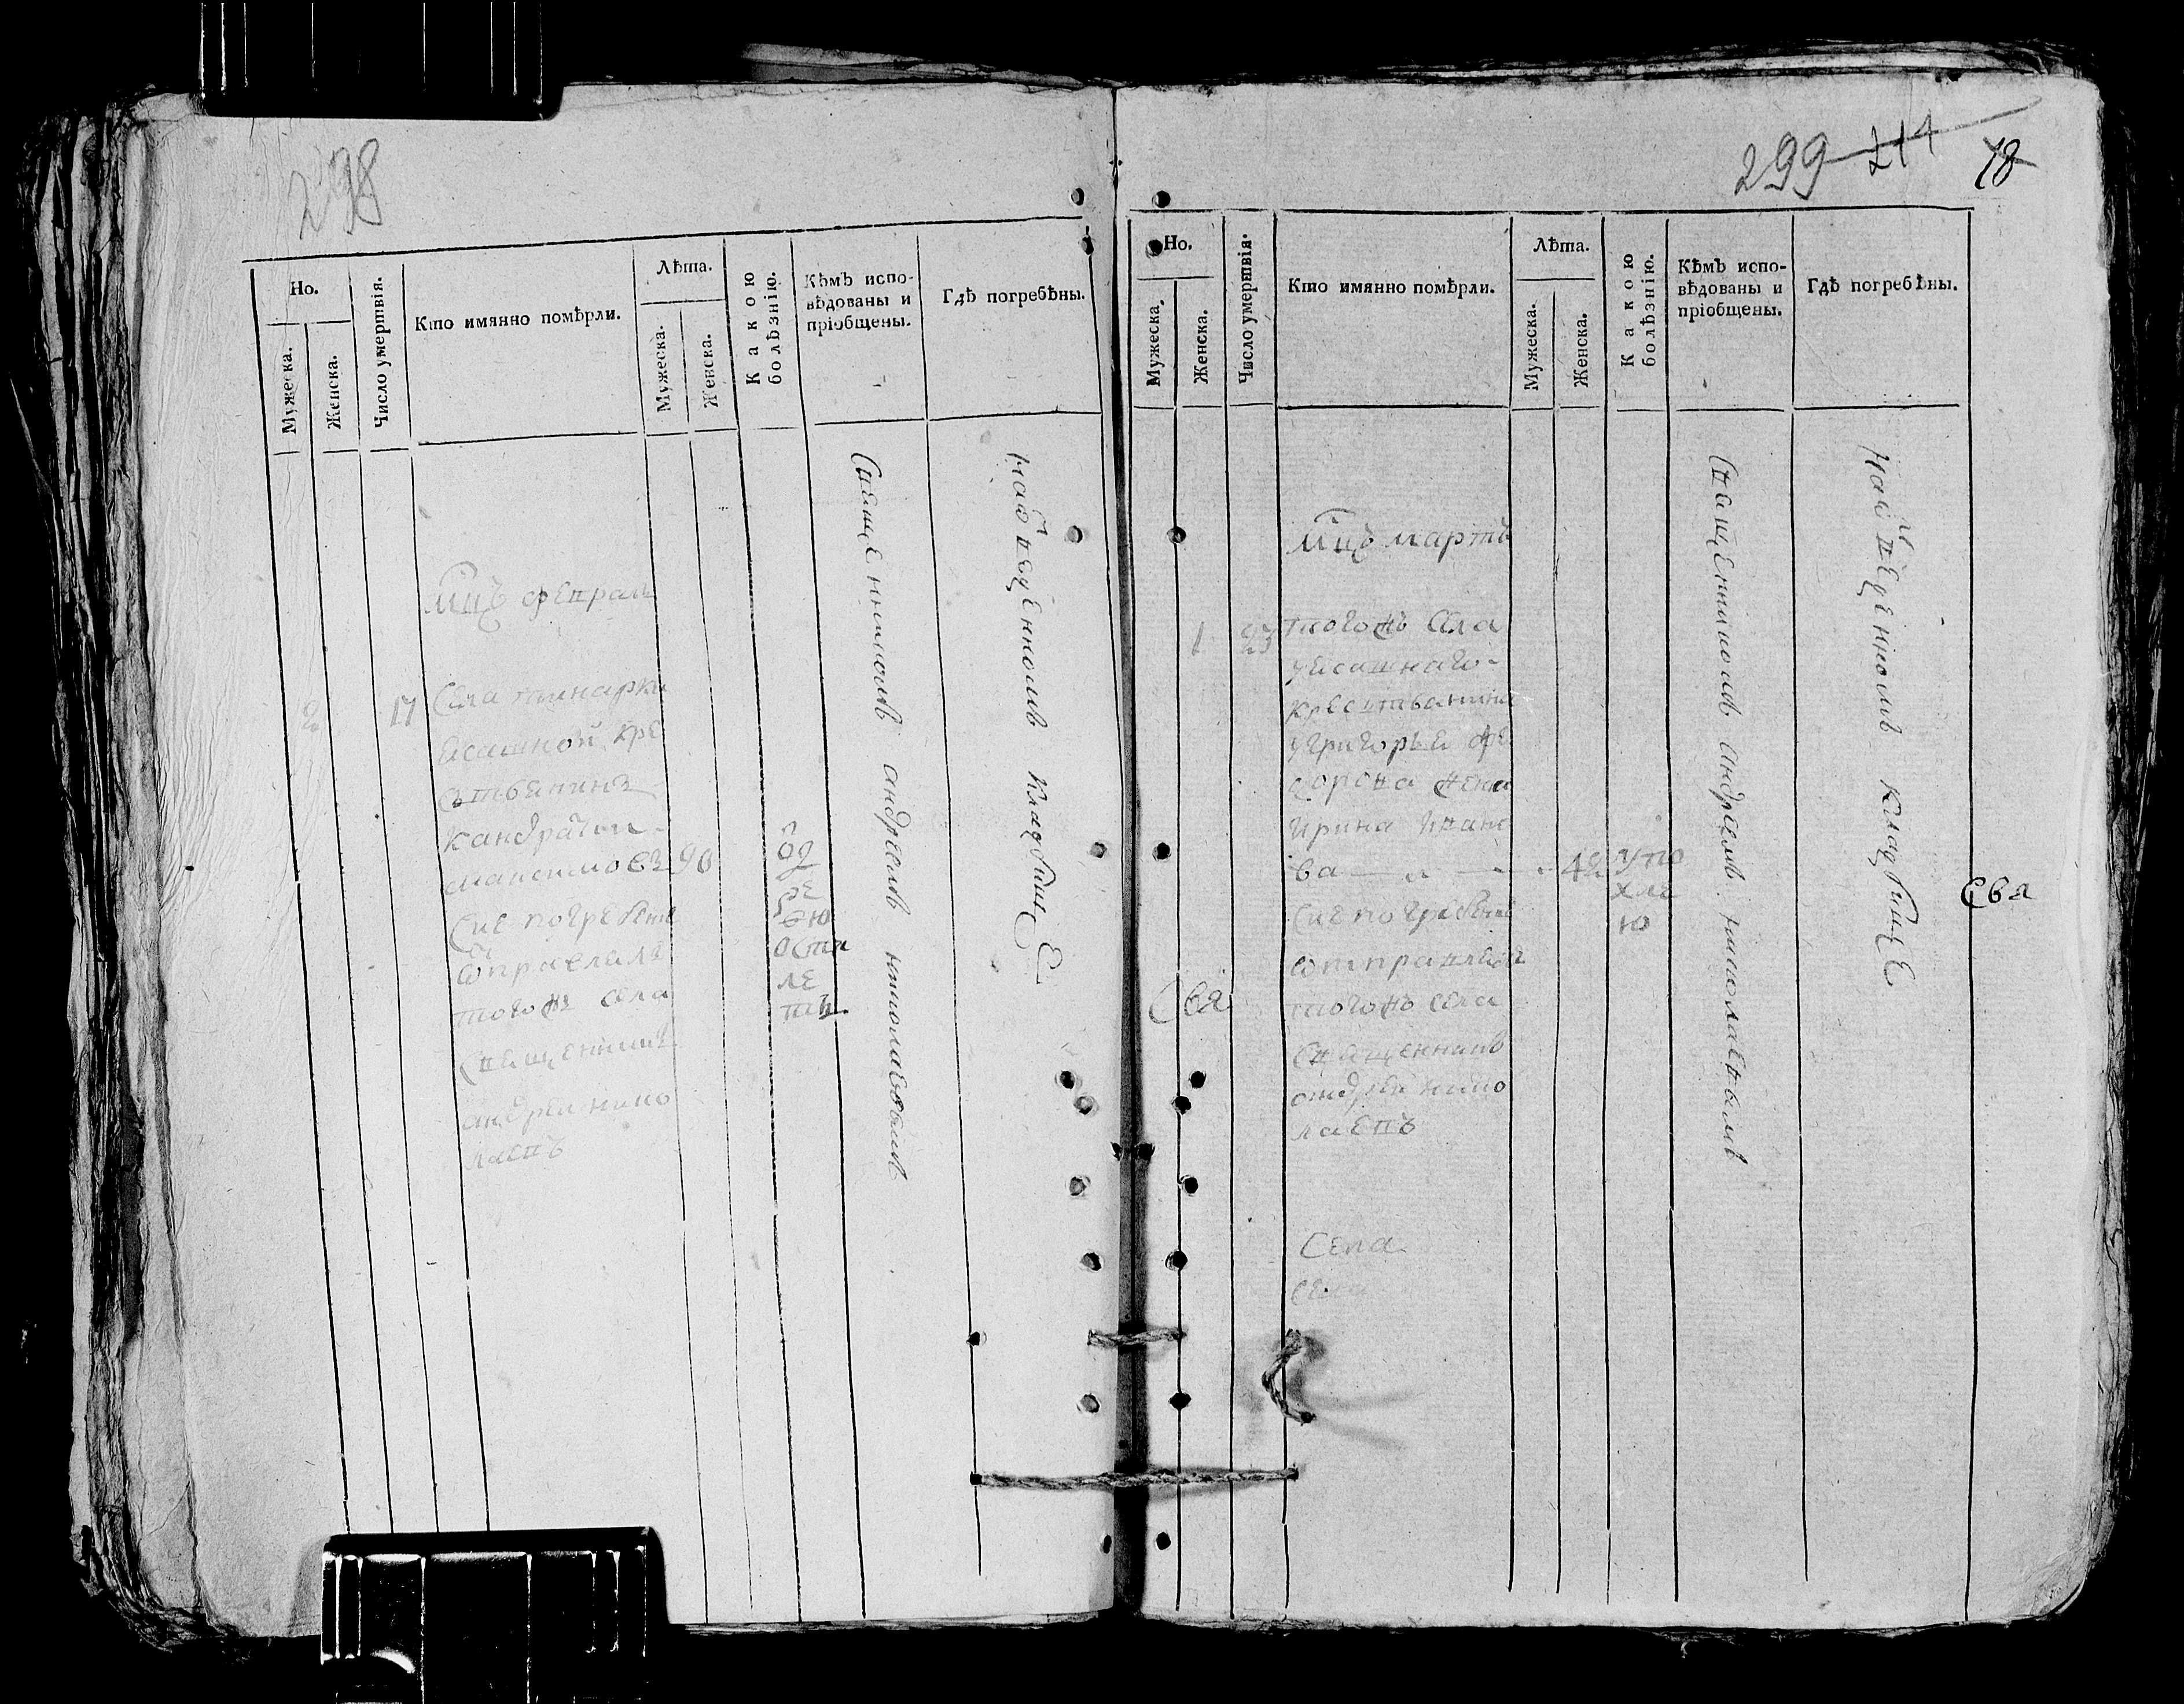 298
Но.
Мужеска.
Женска.
Число умертвія.
Кто имянно помѣрли.
Лѣта.
Мужеска.
Женска.
Какою болѣзнію.
Кѣмъ испо-
вѣдованы и
пріобщены.
Гдѣ погребѣны.
мцъ феврал
2
17
Села
ясашной кре
стьянинъ
кандратеи
максимовъ 90
Сие погребение
отправлялъ
тогожъ села
Священникъ
андреи нико
лаевъ
одре
ею
оста
ле
ты
Священникомъ андреемъ николаевымъ
на отведенномъ кладбищѣ
299 214 18
Но.
Мужеска.
Женска.
Число умертвія.
Кто имянно помѣрли.
Лѣта.
Мужеска.
Женска.
Какою болѣзнію.
Кѣмъ испо-
вѣдованы и
пріобщены.
Гдѣ погребѣны.
мцъ мартъ
1
23
тогожъ села
уясашнаго
крестьянина
угригорья фе
дорова жена
ирина ивано
ва 42
Сие погребение
отправлялъ
тогожъ села
Священникъ
андреи нико
лаевъ
Села
Священникомъ андреемъ николаевымъ
на отведенномъ кладбищѣ
Свя
Свя